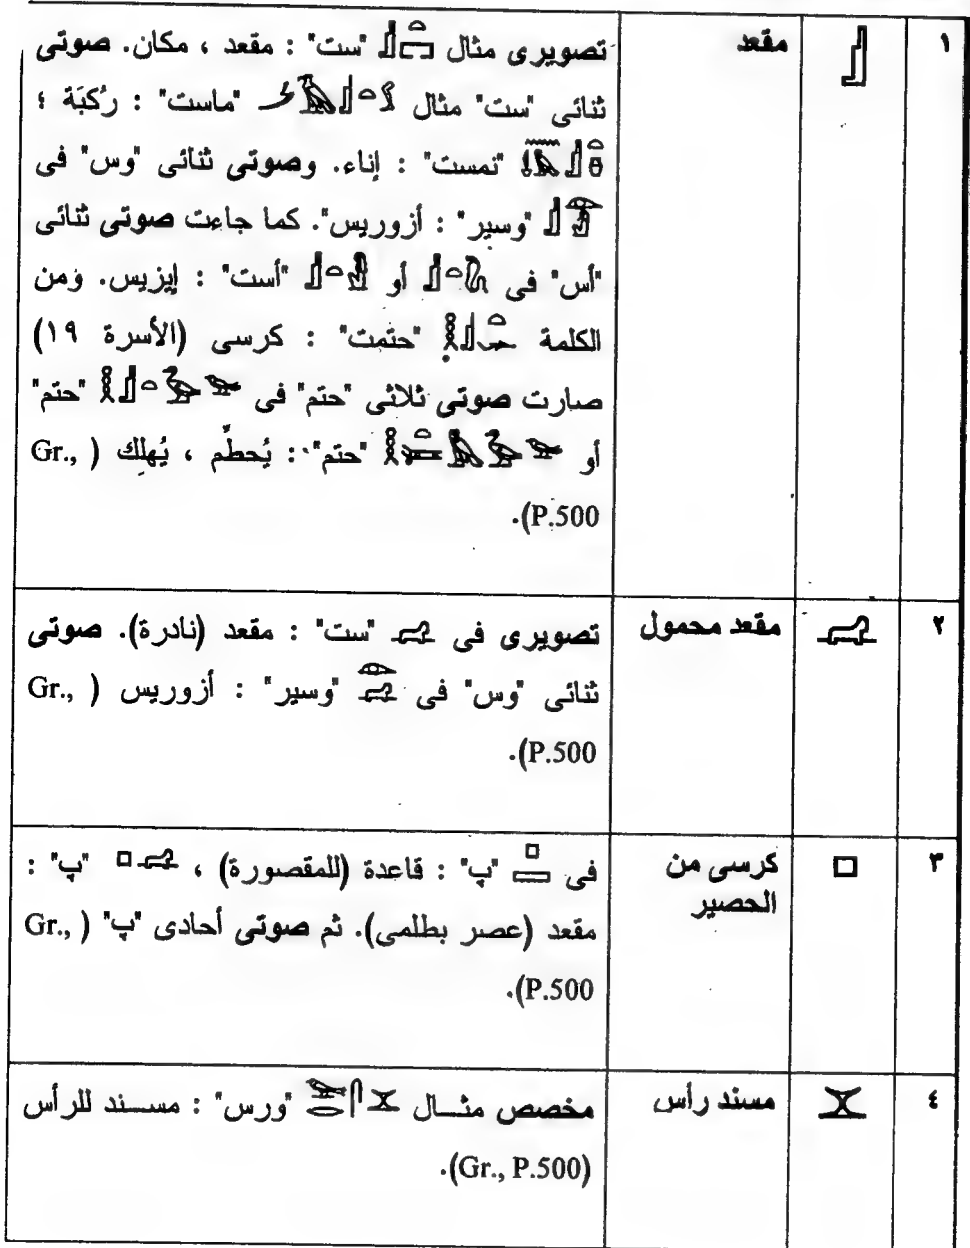 ١ 𓊨 مقعد تصويرى مثال 𓊨𓏏𓉐 "ست" : مقعد ، مكان. صوتى
ثنائى "ست" مثال "ماست" : رُكبَة ؛
"نمست" : إناء. وصوتى ثنائى "وس" فى
"وسير" : أزوريس". كما جاءت صوتى ثنائى
"أس" فى أو "أست" : إيزيس. ومن
الكلمة "حتمت" : كرسى (الأسرة ١٩)
صارت صوتى ثلاثى "حتم" فى "حتم"
أو "حتم" : يُحطَّم ، يُهلِك (Gr.,
P.500).
٢ مقعد محمول تصويرى فى "ست" : مقعد (نادرة). صوتى
ثنائى "وس" فى "وسير" : أزوريس (Gr.,
P.500).
٣ 𓊪 كرسى من فى "پ" : قاعدة (للمقصورة) ، "پ" :
الحصير مقعد (عصر بطلمى). ثم صوتى أحادى "پ" (Gr.,
P.500).
٤ 𓊶 مسند رأس مخصص مثال "ورس" : مسند للرأس
(Gr., P.500).